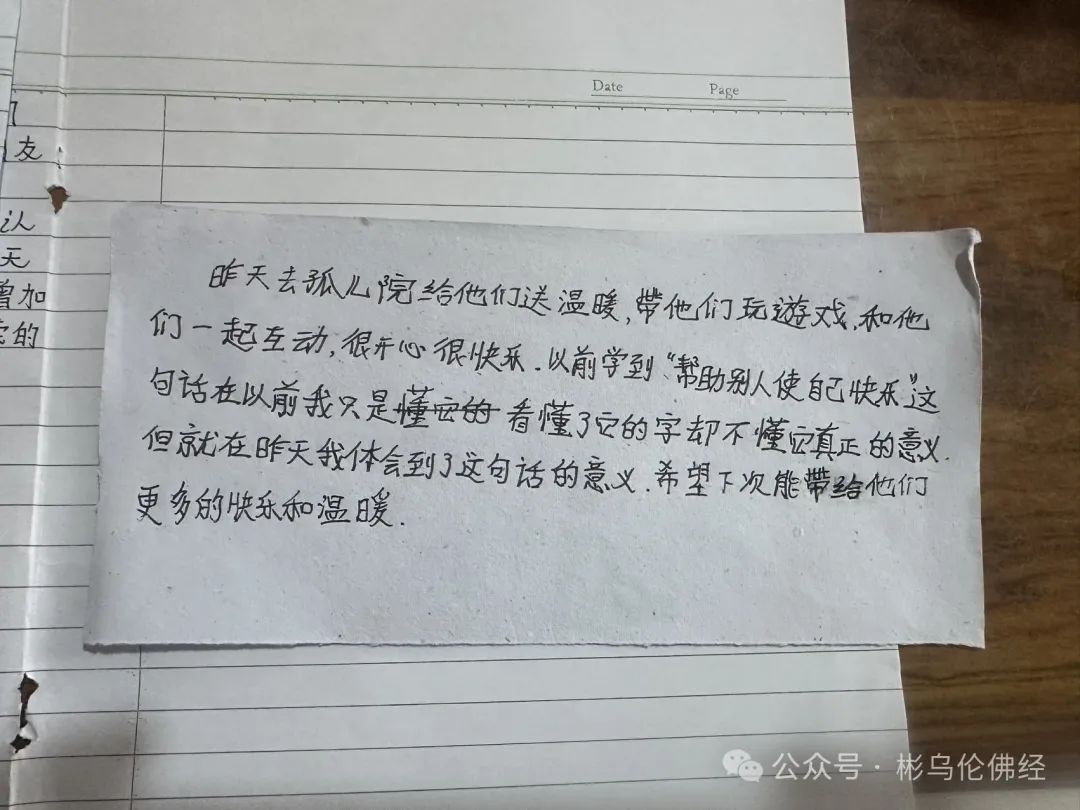 Date Page
友
认
天
增加
的
昨天去孤儿院给他们送温暖,带他们玩遊戏,和他
们一起互动,很开心很快乐.以前学到“帮助别人使自己快乐”这
句话在以前我只是懂它的看懂了它的字却不懂它真正的意义.
但就在昨天我体会到了这句话的意义.希望下次能带给他们
更多的快乐和温暖.
公众号·彬乌伦佛经